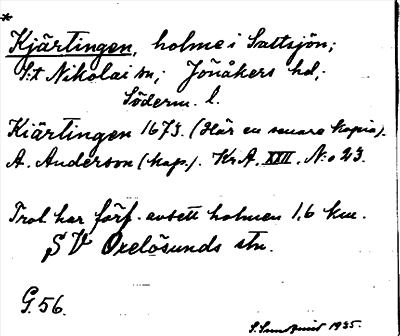 *
Kjärtingen, holme i Saltsjön;
S:t Nikolai sn; Jönåkers hd;
Söderm. l.
Kiärtingen 1673. (Här en senare kopia).
A. Anderson (kap.). Kr.A. XXII. N:o 23.
Trol. har förf. avsett holmen 1,6 km.
SV Oxelösunds stn.
G. 56.
S. Sundquist 1935.